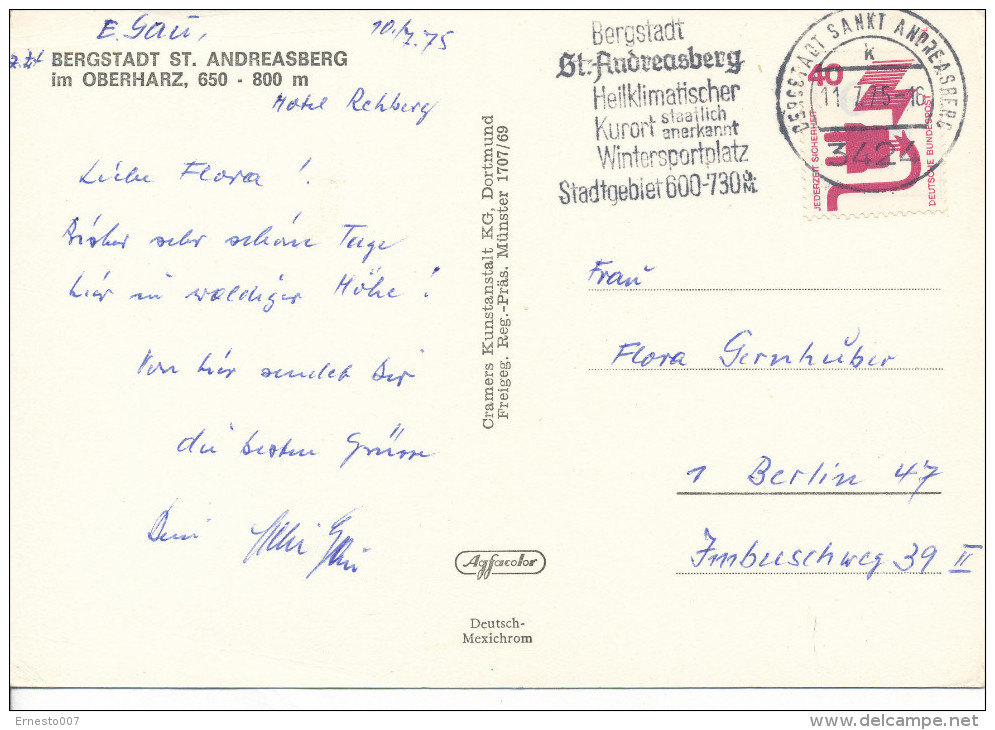 E. Gau, 10./7.75
z.Zt. BERGSTADT ST. ANDREASBERG
im OBERHARZ, 650 - 800 m
Hotel Rehberg
Liebe Flora!
Bisher sehr schöne Tage
hier in waldiger Höhe!
Von hier sendet Dir
die besten Grüsse
Dein
Cramers Kunstanstalt KG, Dortmund
Freigeg. Reg.-Präs. Münster 1707/69
Agfacolor
Deutsch-
Mexichrom
Bergstadt
St. Andreasberg
Heilklimatischer
Kurort staatlich
anerkannt
Wintersportplatz
Stadtgebiet 600-730 ü.M.
BERGSTADT SANKT ANDREASBERG
k
11.7.75-16
3424
40
JEDERZEIT SICHERHEIT
DEUTSCHE BUNDESPOST
Frau
Flora Gernhuber
1 Berlin 47
Imbuschweg 39 II
Ernesto007
delcampe.net